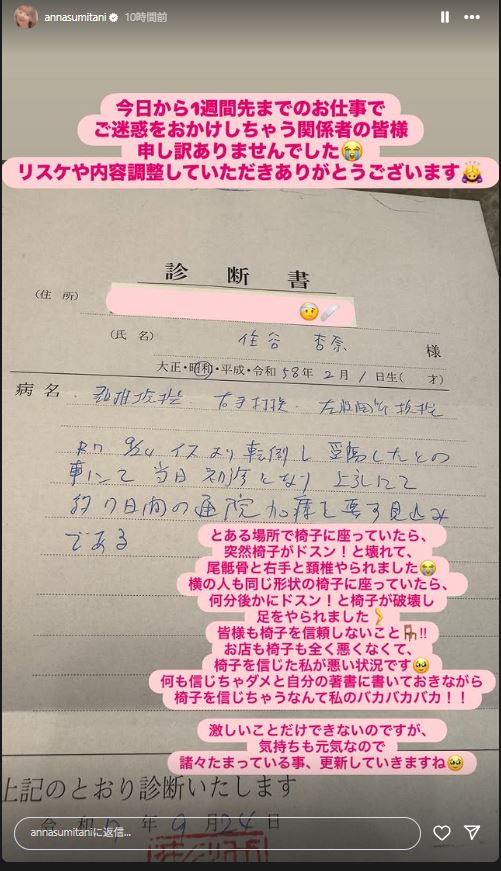 annasumitani 10時間前
今日から1週間先までのお仕事で
ご迷惑をおかけしちゃう関係者の皆様
申し訳ありませんでした😭
リスケや内容調整していただきありがとうございます🙇
診断書
(住所)
(氏名) 住谷 杏奈 様
大正・昭和・平成・令和 58年 2月 1日生( 才)
病名 頚椎捻挫 右手打撲
R7 9/24 イスより転倒し受傷したとの
事にて当日初診となり上記にて
約7日間の通院加療を要す見込み
である
とある場所で椅子に座っていたら、
突然椅子がドスン！と壊れて、
尾骶骨と右手と頚椎やられました😭
横の人も同じ形状の椅子に座っていたら、
何分後かにドスン！と椅子が破壊し
足をやられました🦵
皆様も椅子を信頼しないこと🪑‼️
お店も椅子も全く悪くなくて、
椅子を信じた私が悪い状況です🥹
何も信じちゃダメと自分の著書に書いておきながら
椅子を信じちゃうなんて私のバカバカバカ！！
激しいことだけできないのですが、
気持ちも元気なので
諸々たまっている事、更新していきますね🥹
上記のとおり診断いたします
令和 7年 9月24日
annasumitaniに返信...